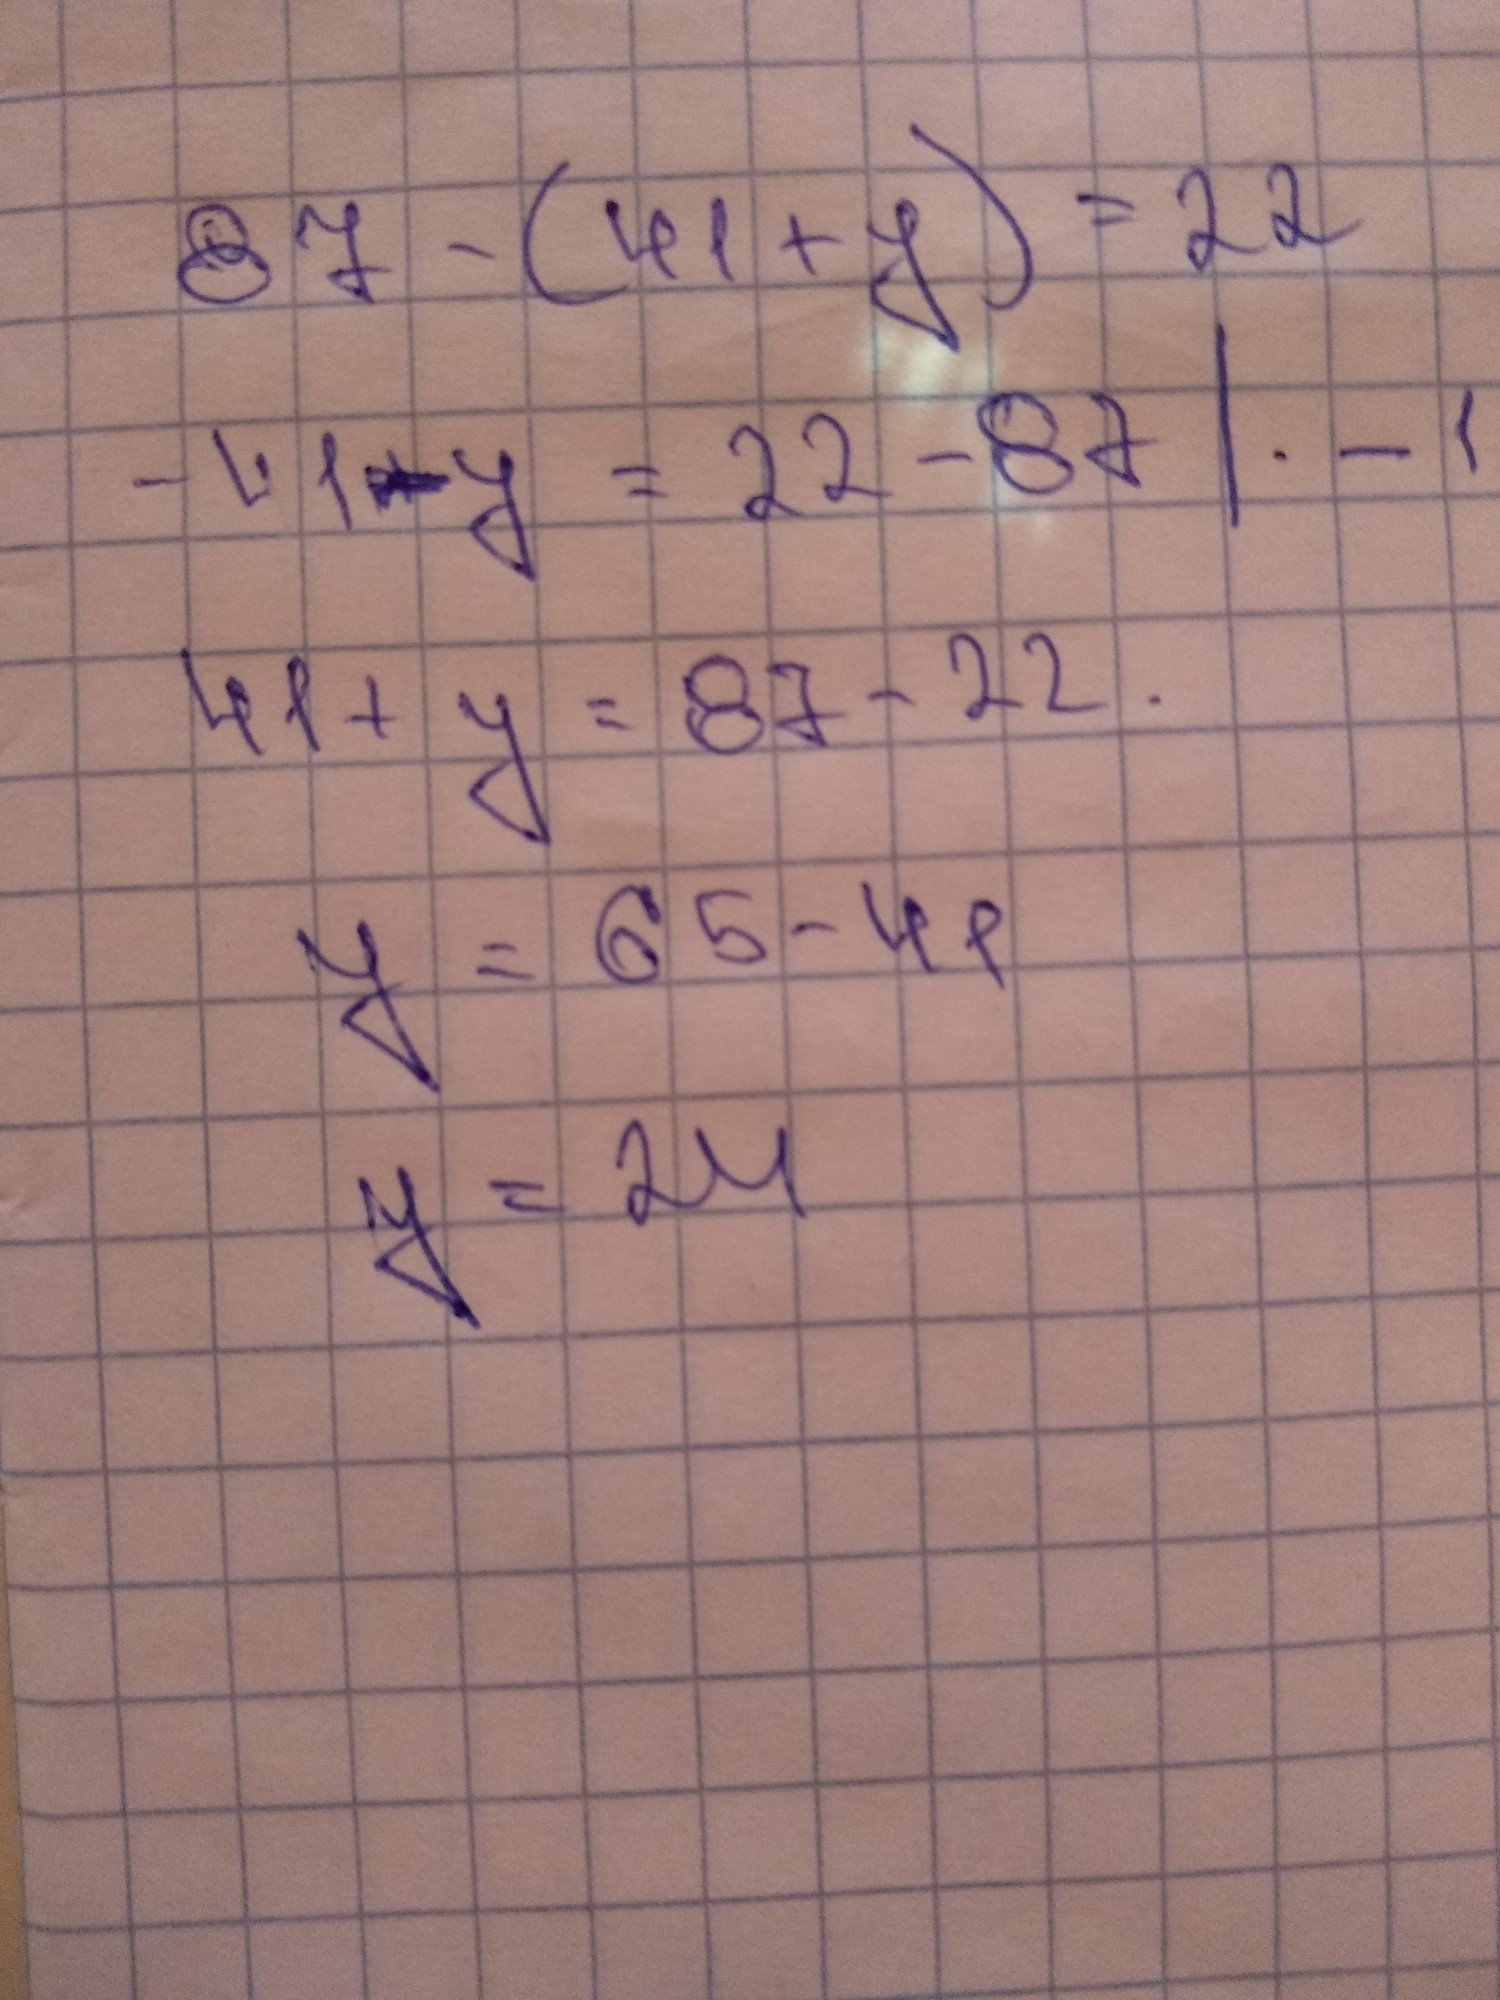 87 - (41 + y) = 22
- 41 - y = 22 - 87 | · - 1
41 + y = 87 - 22.
y = 65 - 41
y = 24